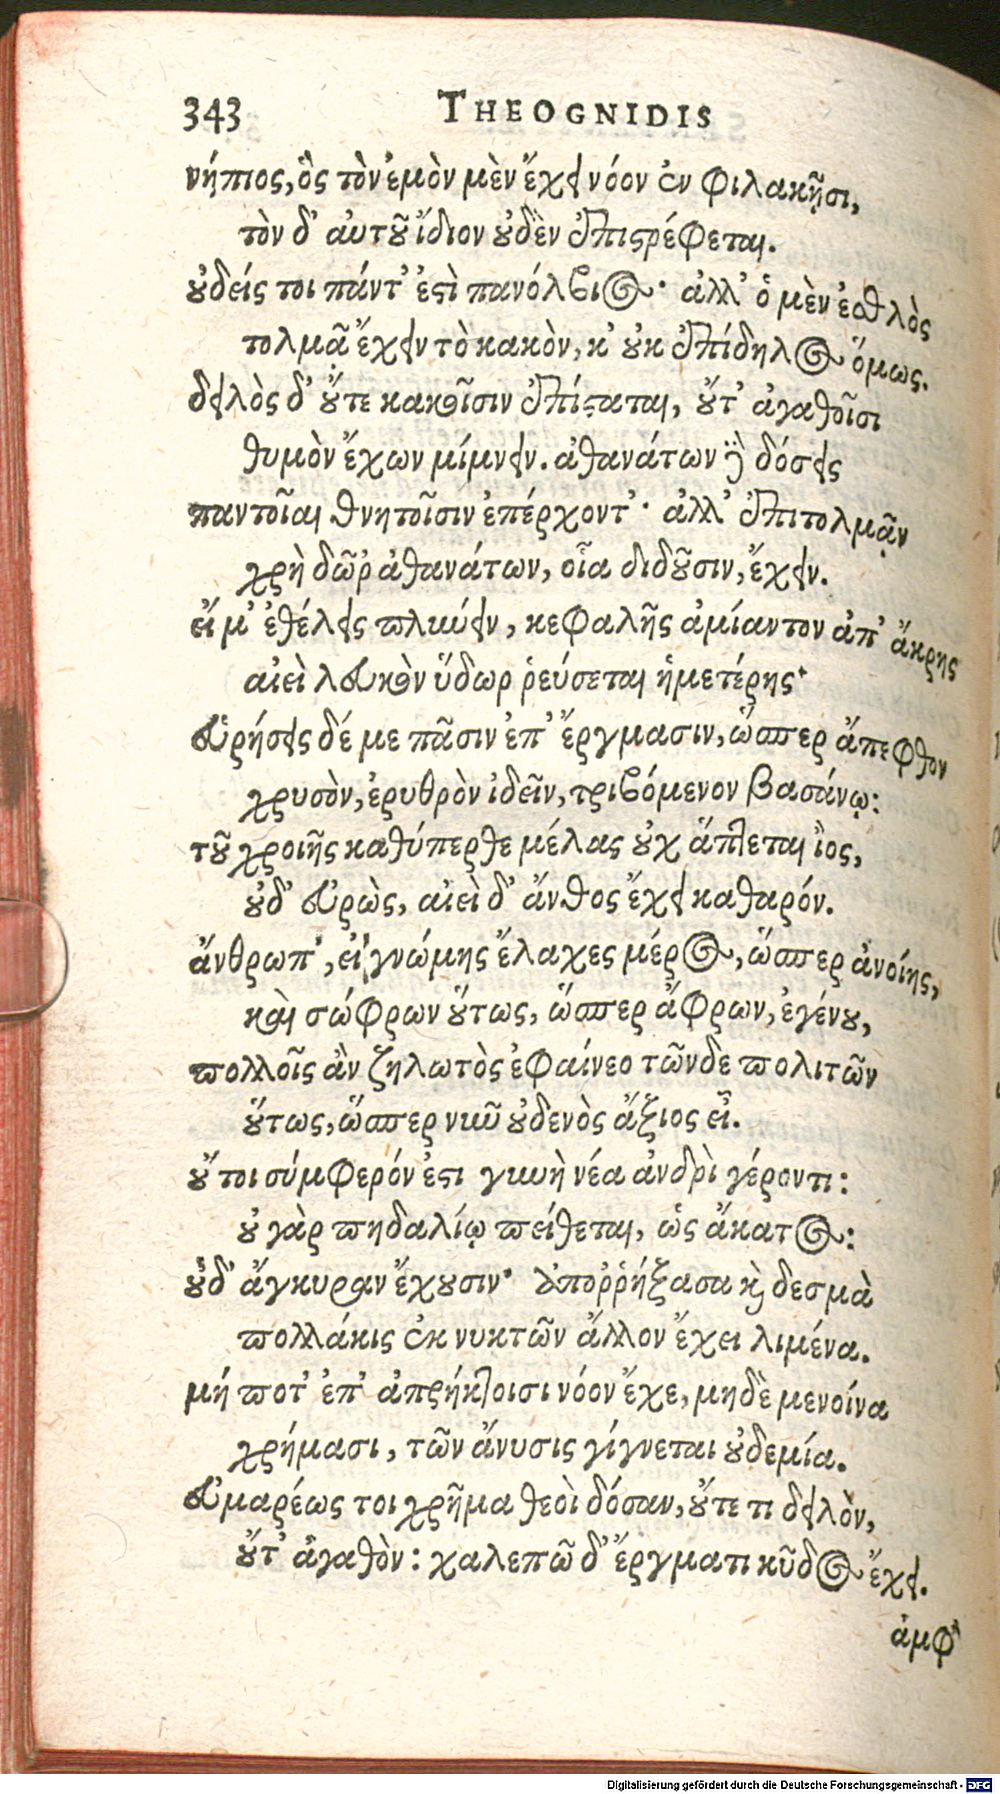 343 THEOGNIDIS
νήπιος, ὃς τὸν ἐμὸν μὲν ἔχει νόον ἐν φιλακῇσι,
τὸν δ' αὐτοῦ ἴδιον οὐδὲν ἐπιστρέφεται.
οὐδείς τοι πάντ' ἐστὶ πανόλβιος· ἀλλ' ὁ μὲν ἐσθλὸς
τολμᾷ ἔχειν τὸ κακὸν, κ' οὐκ ἐπίδηλος ὅμως.
δειλὸς δ' οὔτε κακοῖσιν ἐπίσταται, οὔτ' ἀγαθοῖσι
θυμὸν ἔχων μίμνειν. ἀθανάτων δὲ δόσεις
παντοῖαι θνητοῖσιν ἐπέρχοντ'· ἀλλ' ἐπιτολμᾷν
χρὴ δῶρ' ἀθανάτων, οἷα διδοῦσιν, ἔχειν.
εἴ μ' ἐθέλεις πλυύειν, κεφαλῆς ἀμίαντον ἀπ' ἄκρης
αἰεὶ λευκὸν ὕδωρ ῥεύσεται ἡμετέρης·
εὑρήσεις δέ με πᾶσιν ἐπ' ἔργμασιν, ὥσπερ ἄπεφθον
χρυσὸν, ἐρυθρὸν ἰδεῖν, τριβόμενον βασάνῳ:
τοῦ χροιῆς καθύπερθε μέλας οὐχ ἅπτεται ἰὸς,
οὐδ' εὐρὼς, αἰεὶ δ' ἄνθος ἔχει καθαρόν.
ἄνθρωπ', εἰ γνώμης ἔλαχες μέρος, ὥσπερ ἀνοίης,
καὶ σώφρων οὕτως, ὥσπερ ἄφρων, ἐγένου,
πολλοῖς ἂν ζηλωτὸς ἐφαίνεο τῶνδε πολιτῶν
οὕτως, ὥσπερ νυῦ οὐδενὸς ἄξιος εἶ.
οὔτοι σύμφερόν ἐστι γυυὴ νέα ἀνδρὶ γέροντι:
οὐ γὰρ πηδαλίῳ πείθεται, ὡς ἄκατος:
οὐδ' ἄγκυραν ἔχουσιν· ἀποῤῥήξασα καὶ δεσμὰ
πολλάκις ἐκ νυκτῶν ἄλλον ἔχει λιμένα.
μή ποτ' ἐπ' ἀπρήκτοισι νόον ἔχε, μηδὲ μενοίνα
χρήμασι, τῶν ἄνυσις γίγνεται οὐδεμία.
εὐμαρέως τοι χρῆμα θεοὶ δόσαν, οὔτε τι δειλὸν,
οὔτ' ἀγαθὸν: χαλεπῶ δ' ἔργματι κῦδος ἔχει.
ἀμφ'
Digitalisierung gefördert durch die Deutsche Forschungsgemeinschaft - DFG